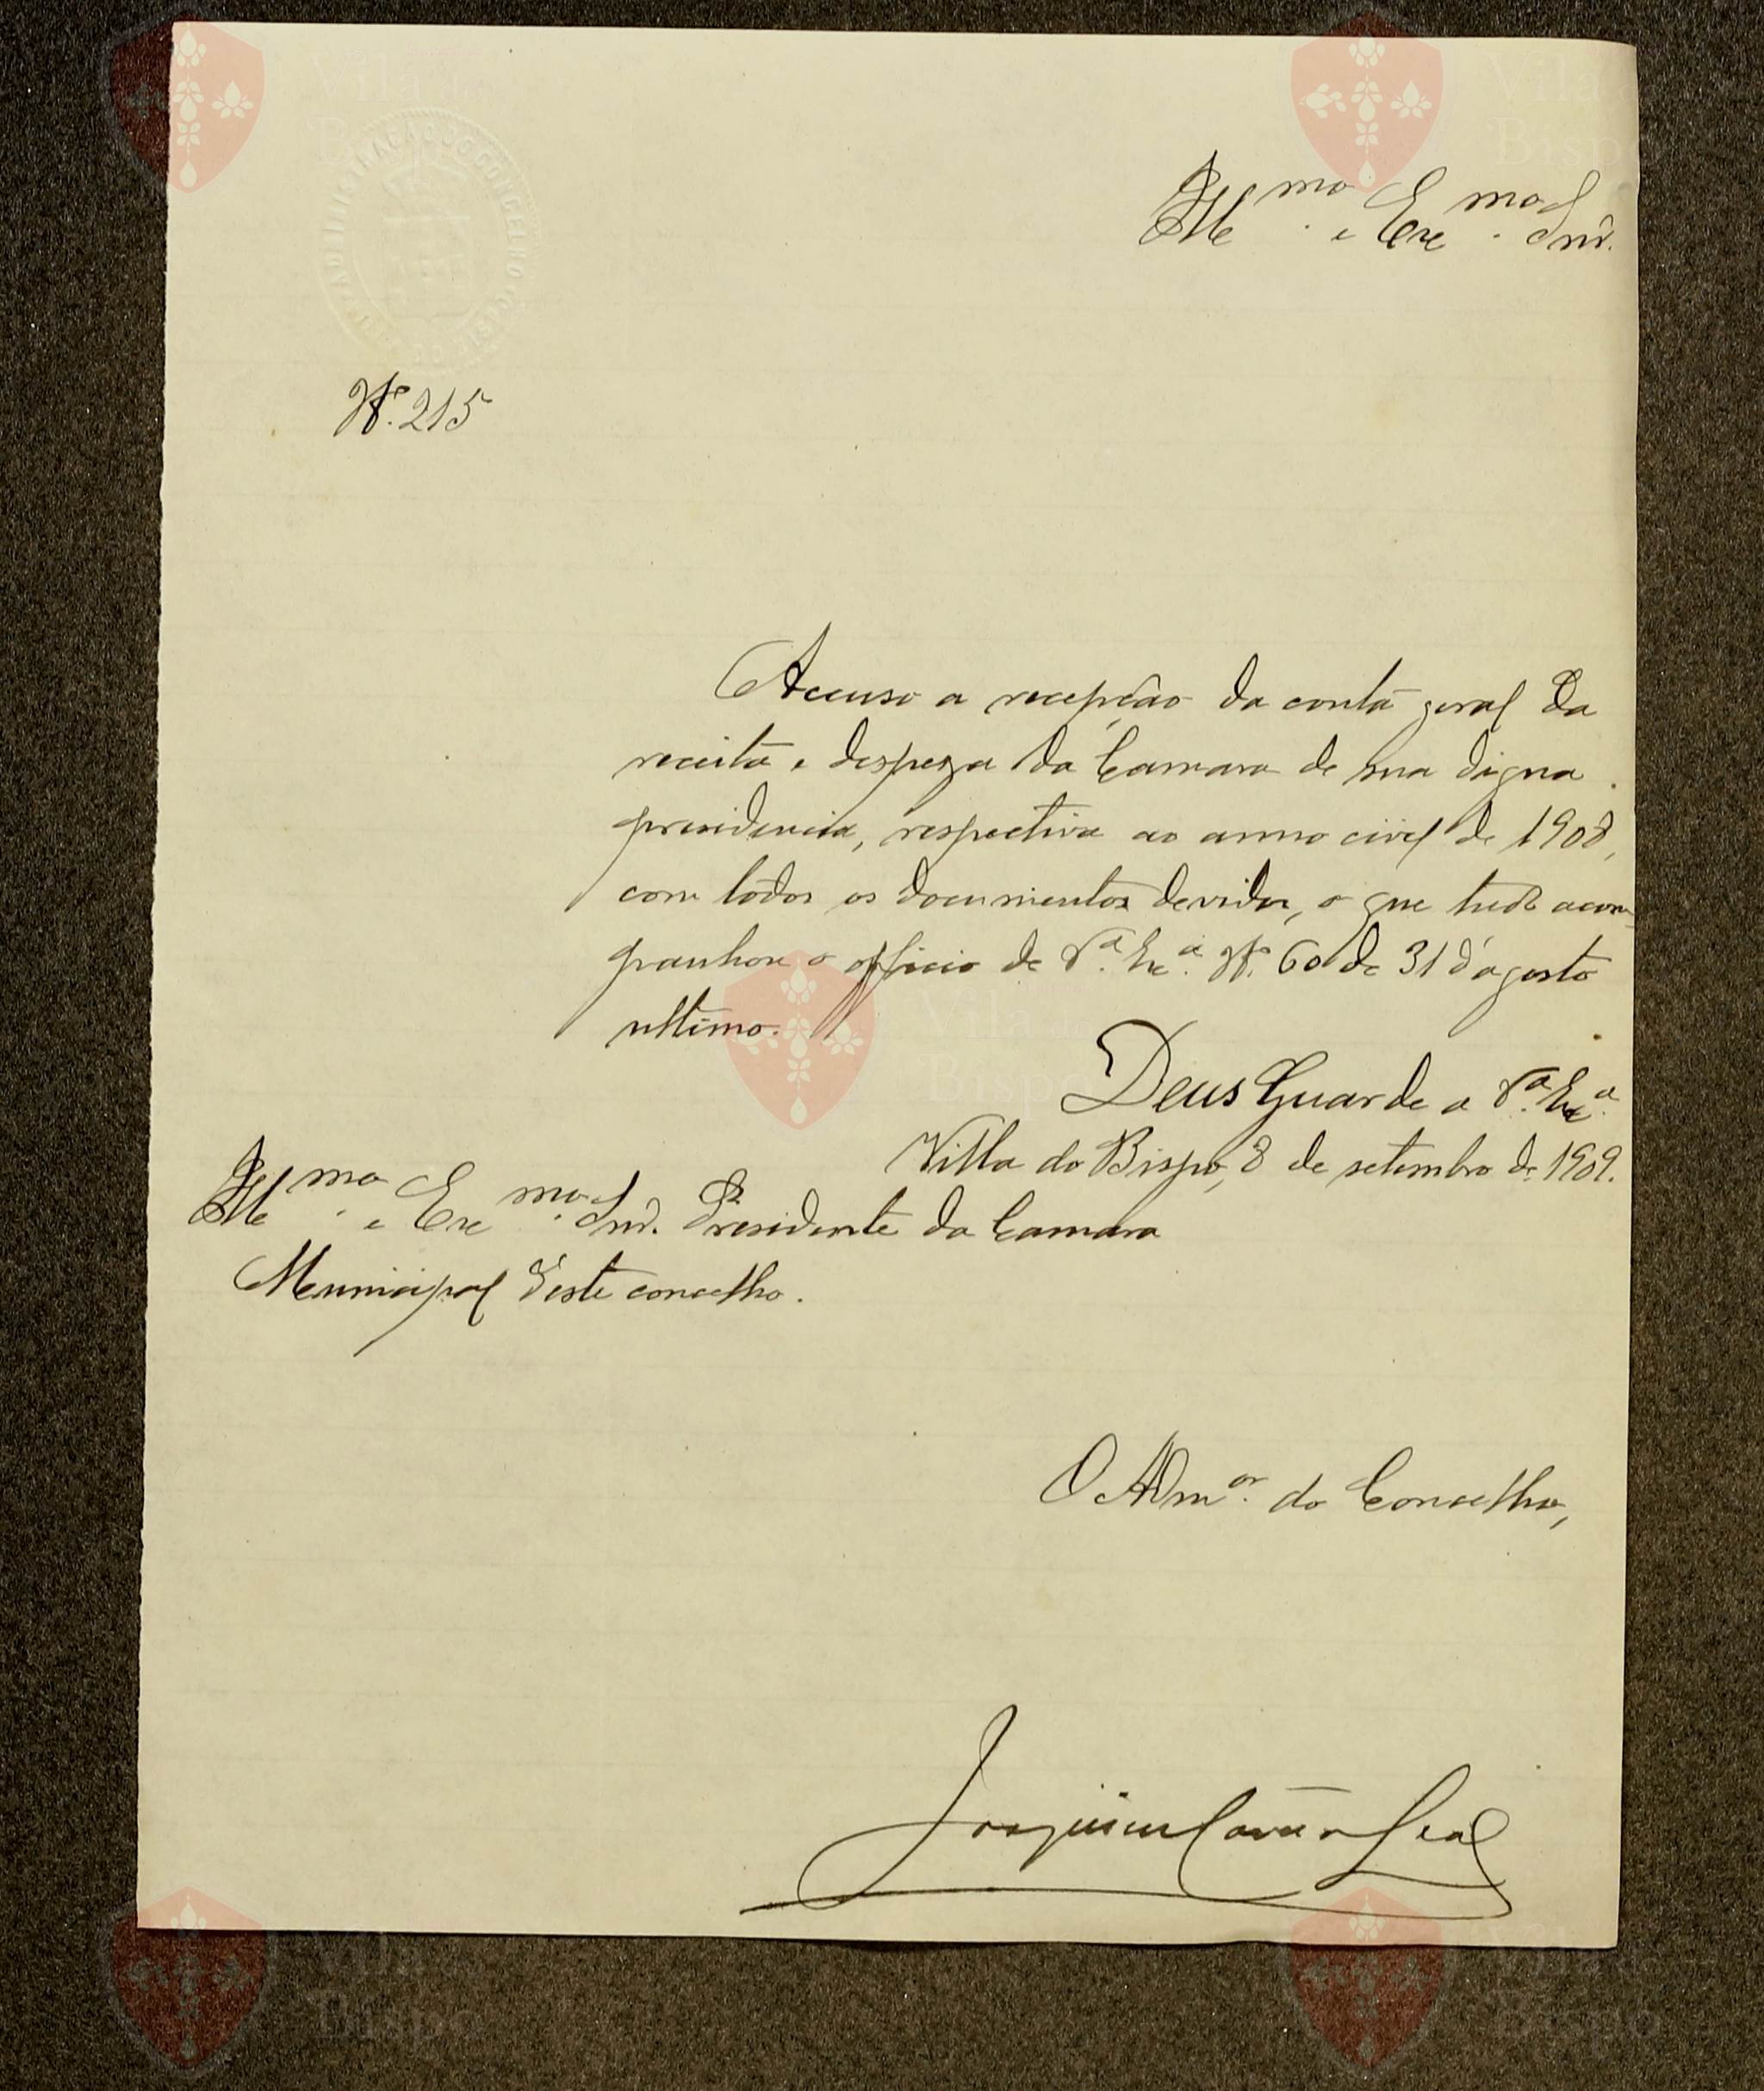 Illᵐᵒ. e Exᵐᵒ. Snr.
Nº. 215
Accuso a recepção da conta geral da
receita e despeza da Camara de sua digna
presidencia, respectiva ao anno civil de 1908,
com todos os documentos devidos, o que tudo acom-
panhou o officio de Vª. Exª. Nº. 60 de 31 d'agosto
ultimo.
Deus Guarde a Vª. Exª.
Villa do Bispo, 8 de setembro de 1909.
Illᵐᵒ. e Exᵐᵒ. Snr. Presidente da Camara
Municipal d'este concelho.
O Admᵒʳ. do Concelho,
Joaquim Leal
Vila do
Bispo